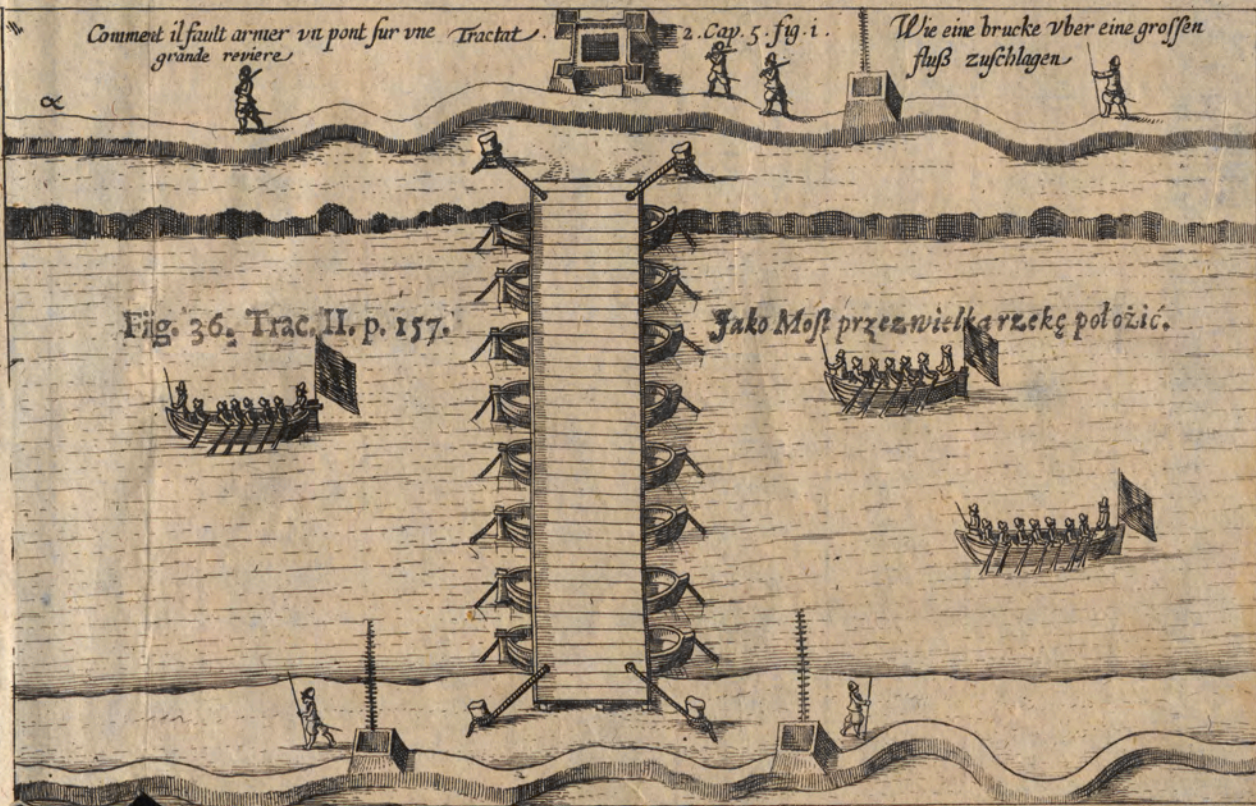 Comment il fault armer vn pont sur vne
grande reviere
Tractat. 2. Cap. 5. fig. i.
Wie eine brucke vber eine grossen
fluß zuschlagen
α
Fig. 36. Trac. II. p. 157.
Jako Most przez wielką rzekę położić.